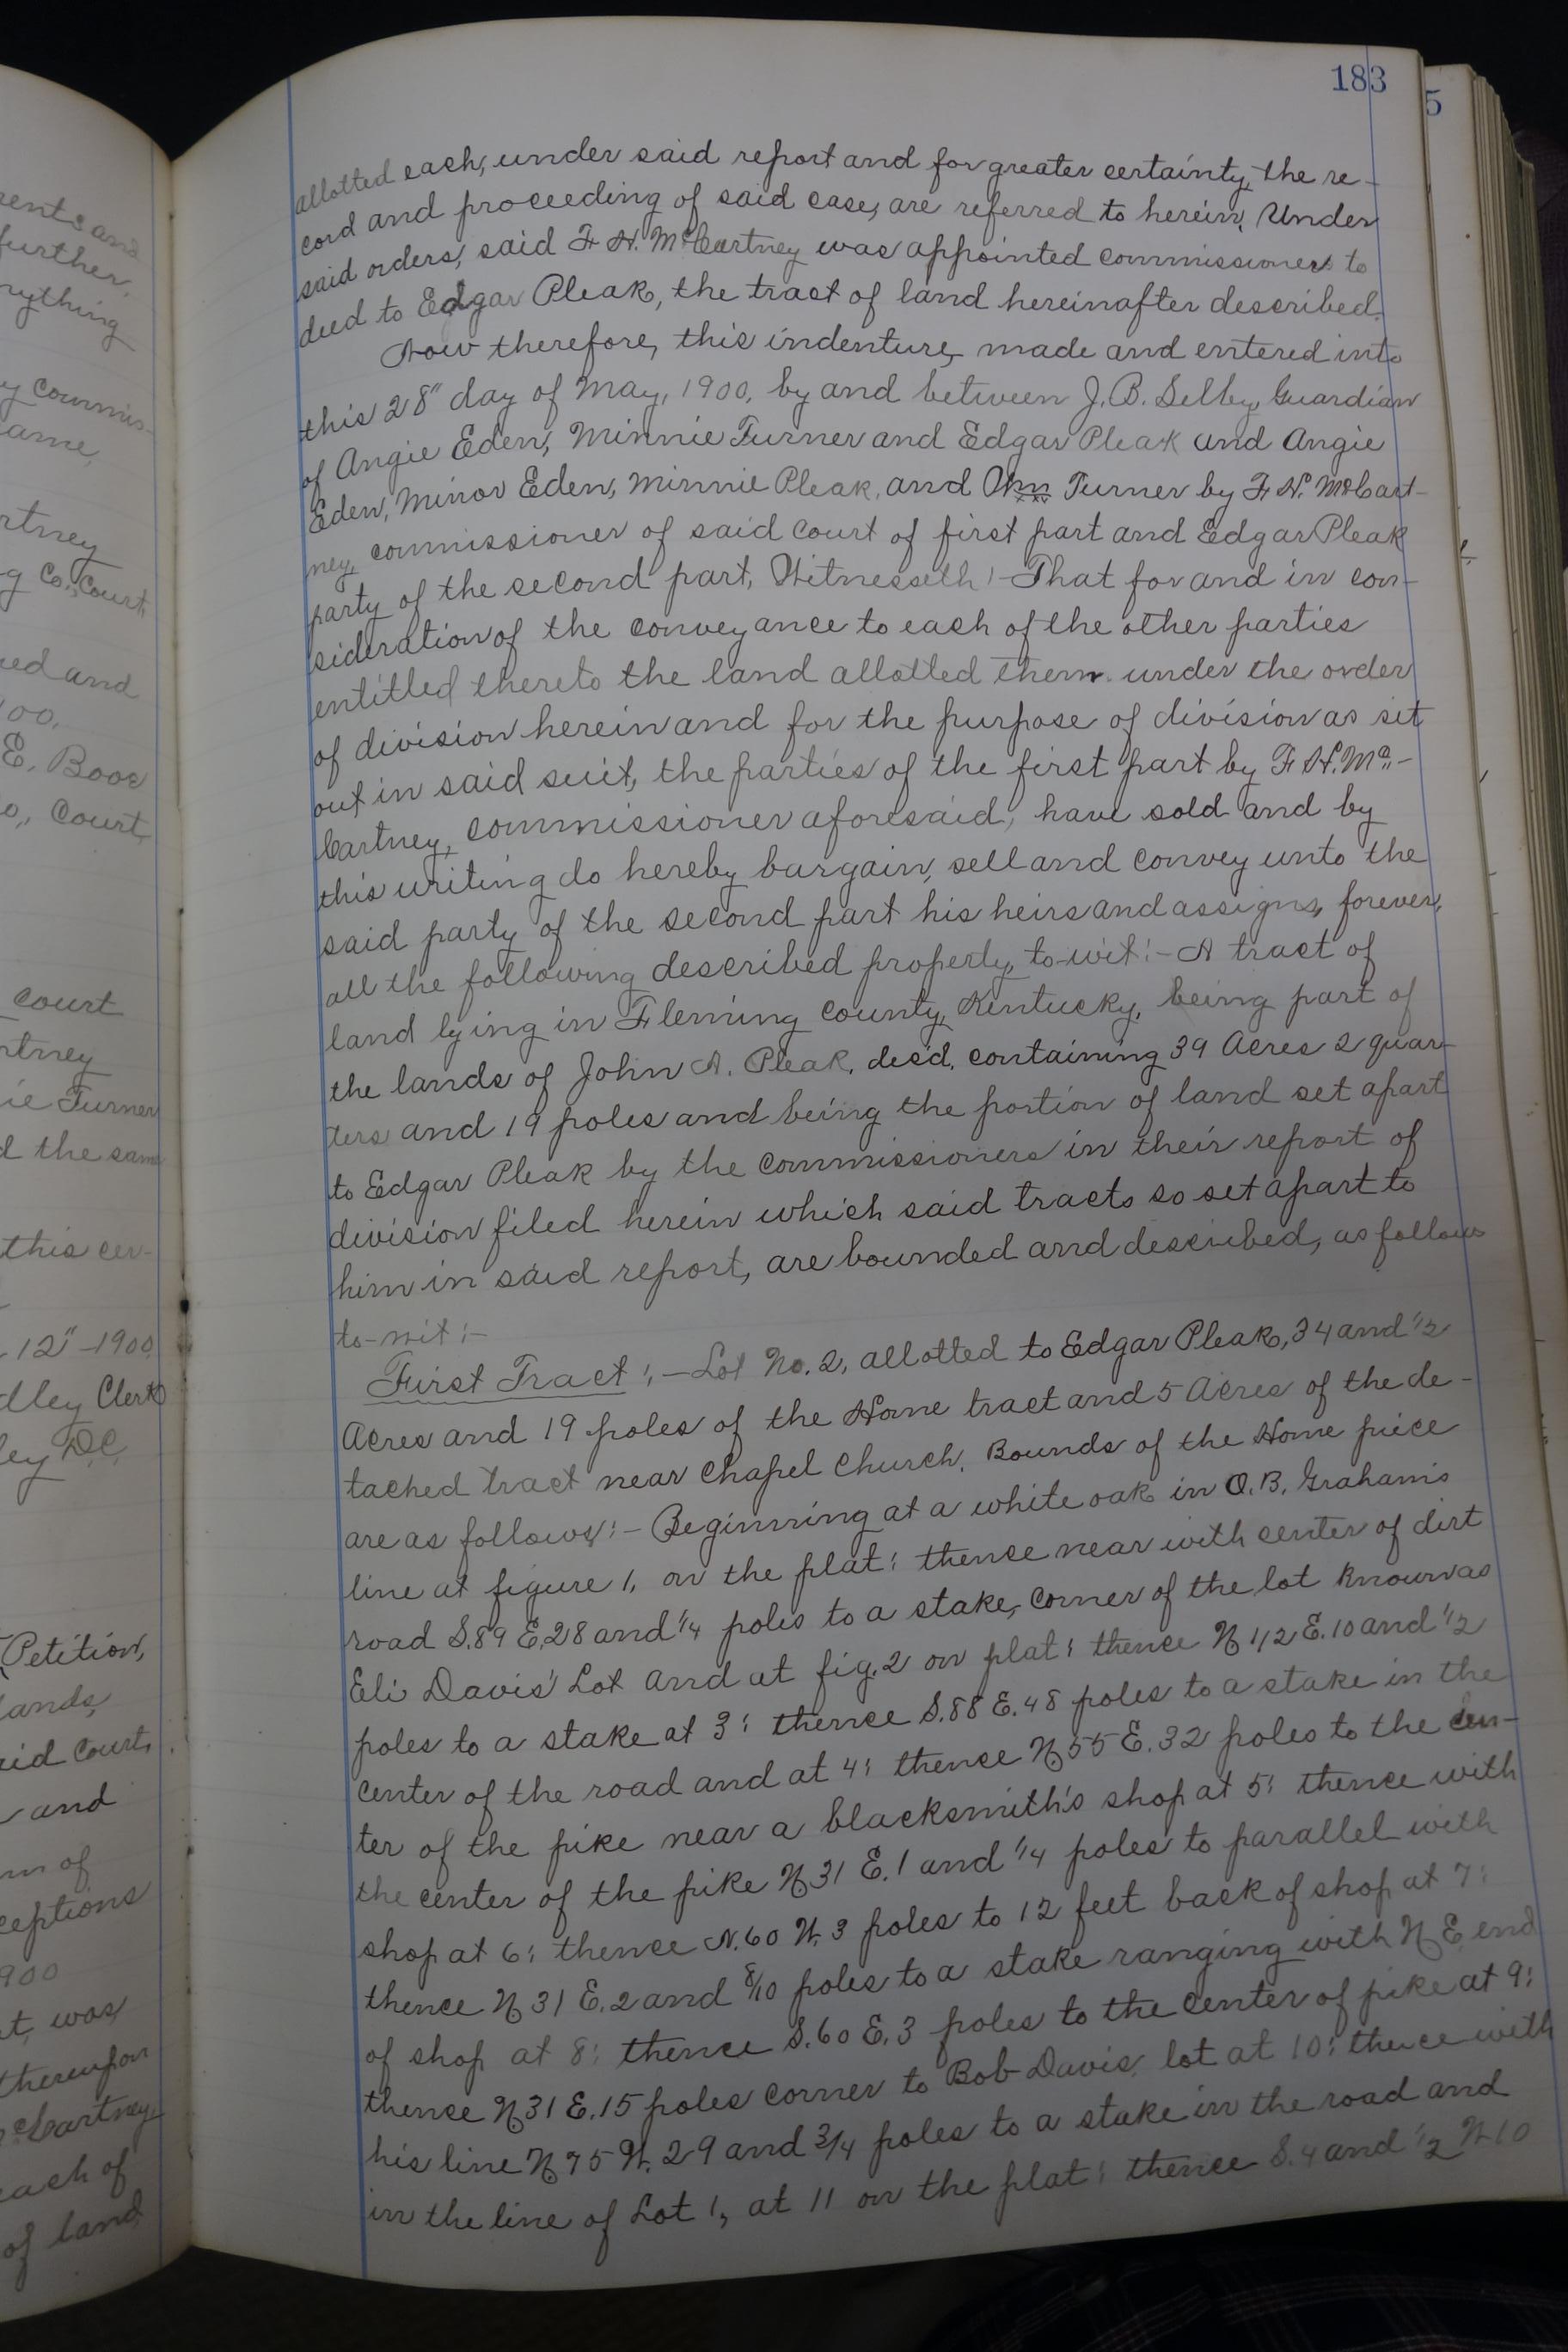 183
5
allotted each, under said report and for greater certainty, the re-
cord and proceeding of said case, are referred to herein. Under
said orders, said F. H. McCartney was appointed commissioners to
deed to Edgar Pleak, the tract of land hereinafter described.
Now therefore, this indenture, made and entered into
this 28" day of May, 1900, by and between J. B. Selby, Guardian
of Angie Eden, Minnie Turner and Edgar Pleak and Angie
Eden, Minor Eden, Minnie Pleak, and Wm Turner by F. H. McCart-
ney, commissioner of said court of first part and Edgar Pleak
party of the second part, Witnesseth:- That for and in con-
sideration of the conveyance to each of the other parties
entitled thereto the land allotted them under the order
of division herein and for the purpose of division as set
out in said suit, the parties of the first part by F. H. Mc-
Cartney, commissioner aforesaid, have sold and by
this writing do hereby bargain, sell and convey unto the
said party of the second part his heirs and assigns, forever,
all the following described property, to-wit:- A tract of
land lying in Fleming County, Kentucky, being part of
the lands of John A. Pleak, dec'd, containing 39 Acres 2 quar-
ters and 19 poles and being the portion of land set apart
to Edgar Pleak by the commissioners in their report of
division filed herein which said tracts so set apart to
him in said report, are bounded and described, as follows
to-wit:-
First Tract:- Lot No. 2, allotted to Edgar Pleak, 34 and 1/2
Acres and 19 poles of the Home tract and 5 Acres of the de-
tached tract near Chapel Church. Bounds of the Home piece
are as follows:- Beginning at a white oak in O. B. Graham's
line at figure 1, on the plat: thence near with center of dirt
road S. 89 E. 28 and 1/4 poles to a stake, corner of the lot known as
Eli Davis' Lot and at fig. 2 on plat: thence N 1/2 E. 10 and 1/2
poles to a stake at 3: thence S. 88 E. 48 poles to a stake in the
center of the road and at 4: thence N 55 E. 32 poles to the cen-
ter of the pike near a blacksmith's shop at 5: thence with
the center of the pike N 31 E. 1 and 1/4 poles to parallel with
shop at 6: thence N. 60 W. 3 poles to 12 feet back of shop at 7:
thence N 31 E. 2 and 8/10 poles to a stake ranging with N E. end
of shop at 8: thence S. 60 E. 3 poles to the center of pike at 9:
thence N 31 E. 15 poles corner to Bob Davis lot at 10: thence with
his line N 75 W. 29 and 3/4 poles to a stake in the road and
in the line of Lot 1, at 11 on the plat: thence S. 4 and 1/2 W 10
further,
rything
y commis-
ame,
rtney
g Co., Court,
ed and
E. Booe
o., Court,
court
rtney
ie Turner
d the same
this cer-
12" 1900
dley Clerk
ley D.C.
Petition,
lands,
aid Court,
and
m of
ceptions
900
t, was
thereupon
Cartney,
each of
of land